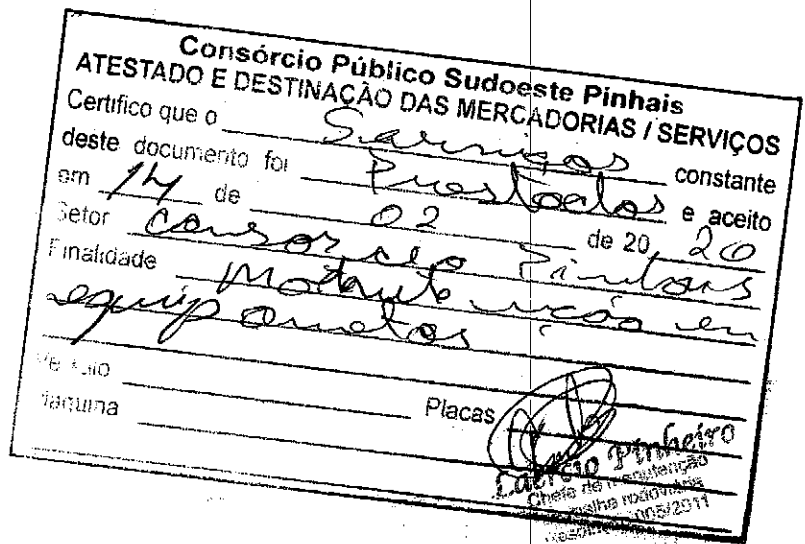 Consórcio Público Sudoeste Pinhais
ATESTADO E DESTINAÇÃO DAS MERCADORIAS / SERVIÇOS
Certifico que o Serviços constante
deste documento foi Prestados e aceito
em 14 de 02 de 20 20
Setor Consorcio Pinhais
Finalidade Manutenção em
equipamentos
Veículo Placas
Maquina
Laercio Pinheiro
Chefe de Manutenção
malha rodoviária
005/2011